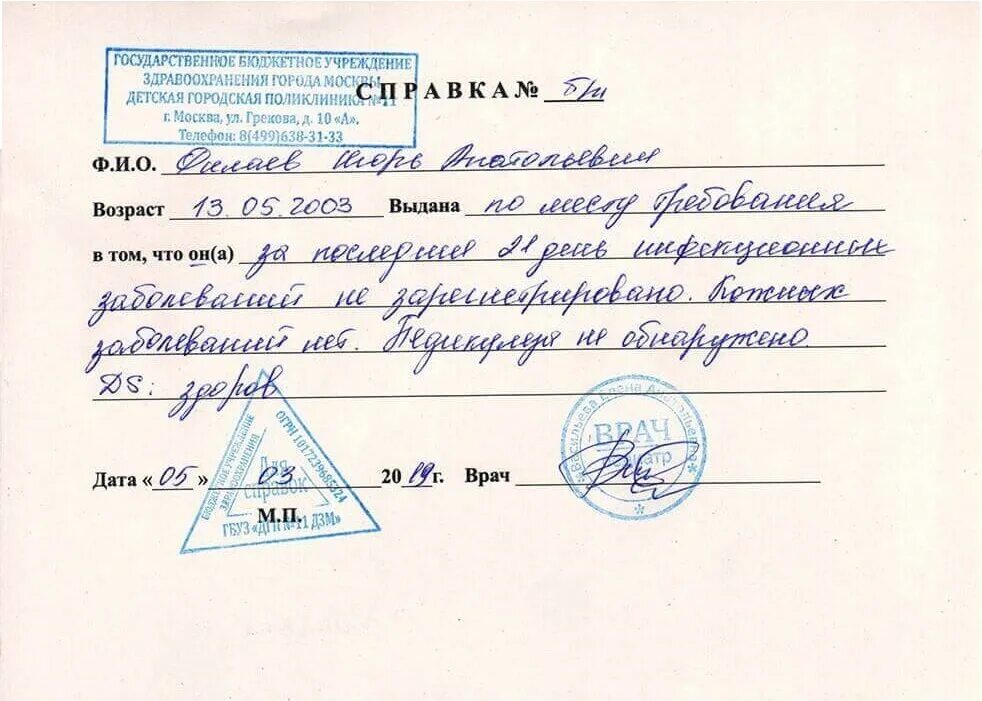 ГОСУДАРСТВЕННОЕ БЮДЖЕТНОЕ УЧРЕЖДЕНИЕ
ЗДРАВООХРАНЕНИЯ ГОРОДА МОСКВЫ
ДЕТСКАЯ ГОРОДСКАЯ ПОЛИКЛИНИКА №11
г. Москва, ул. Грекова, д. 10 «А».
Телефон: 8(499)638-31-33
СПРАВКА № б/н
Ф.И.О. Игорь Анатольевич
Возраст 13.05.2003 Выдана по месту требования
в том, что он(а) за последний 21 день инфекционных
заболеваний не зарегистрировано. Кожных
заболеваний нет. Педикулеза не обнаружено
DS: здоров
Дата «05» 03 2019г. Врач
М.П.
БЮДЖЕТНОЕ УЧРЕЖДЕНИЕ
ЗДРАВООХРАНЕНИЯ
ОГРН 1017239685324
Для
справок
ГБУЗ «ДГП №11 ДЗМ»
Васильева Елена Анатольевна
ВРАЧ